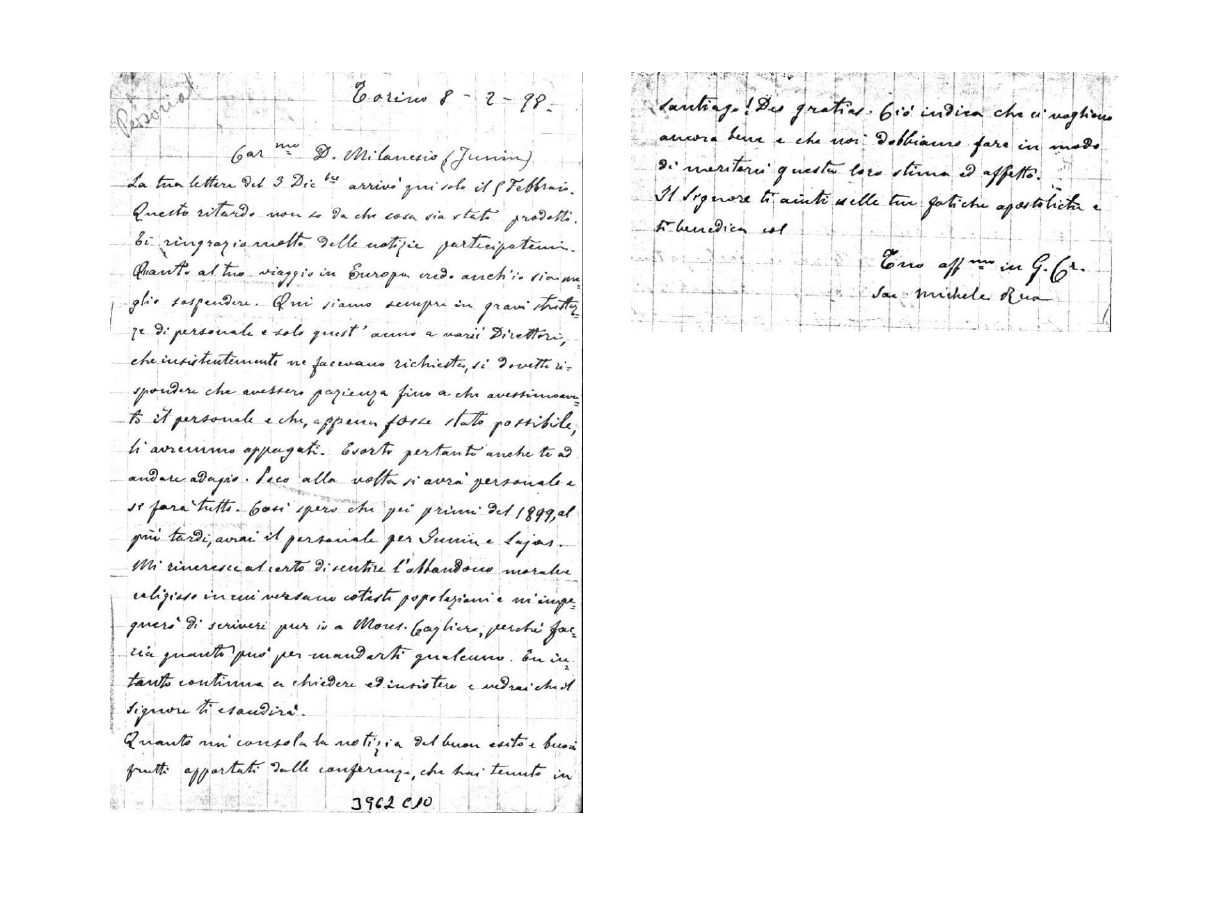 Personal
Torino 8 - 2 - 98.
Car mo D. Milanesio (Junin)
La tua lettera del 3 Dic bre arrivò qui solo il 5 Febbraio.
Questo ritardo non so da che cosa sia stato prodotto.
Ti ringrazio molto delle notizie partecipatemi.
Quanto al tuo viaggio in Europa credo anch'io sia me=
glio sospendere. Qui siamo sempre in gravi strettez=
ze di personale e solo quest'anno a varii Direttori,
che insistentemente ne facevano richiesta, si dovette ri=
spondere che avessero pazienza fino a che avessimo avu=
to il personale e che, appena fosse stato possibile,
li avremmo appagati. Esorto pertanto anche te ad
andare adagio. Poco alla volta si avrà personale e
si farà tutto. Così spero che pei primi del 1899, al
più tardi, avrai il personale per Junin e Lajas.
Mi rincresce al certo di sentire l'abbandono morale e
religioso in cui versano coteste popolazioni e m'impe=
gnerò di scrivere pur io a Mons. Cagliero, perchè fac=
cia quanto può per mandarti qualcuno. Tu in=
tanto continua a chiedere ed insistere e vedrai che il
Signore ti esaudirà.
Quanto mi consola la notizia del buon esito e buoni
frutti apportati dalle conferenze, che hai tenuto in
3962 C10
Santiago! Deo gratias. Ciò indica che ci vogliono
ancora bene e che noi dobbiamo fare in modo
di meritarci questa loro stima ed affetto.
Il Signore ti aiuti nelle tue fatiche apostoliche e
ti benedica col
Tuo aff mo in G. Cr.
Sac. Michele Rua